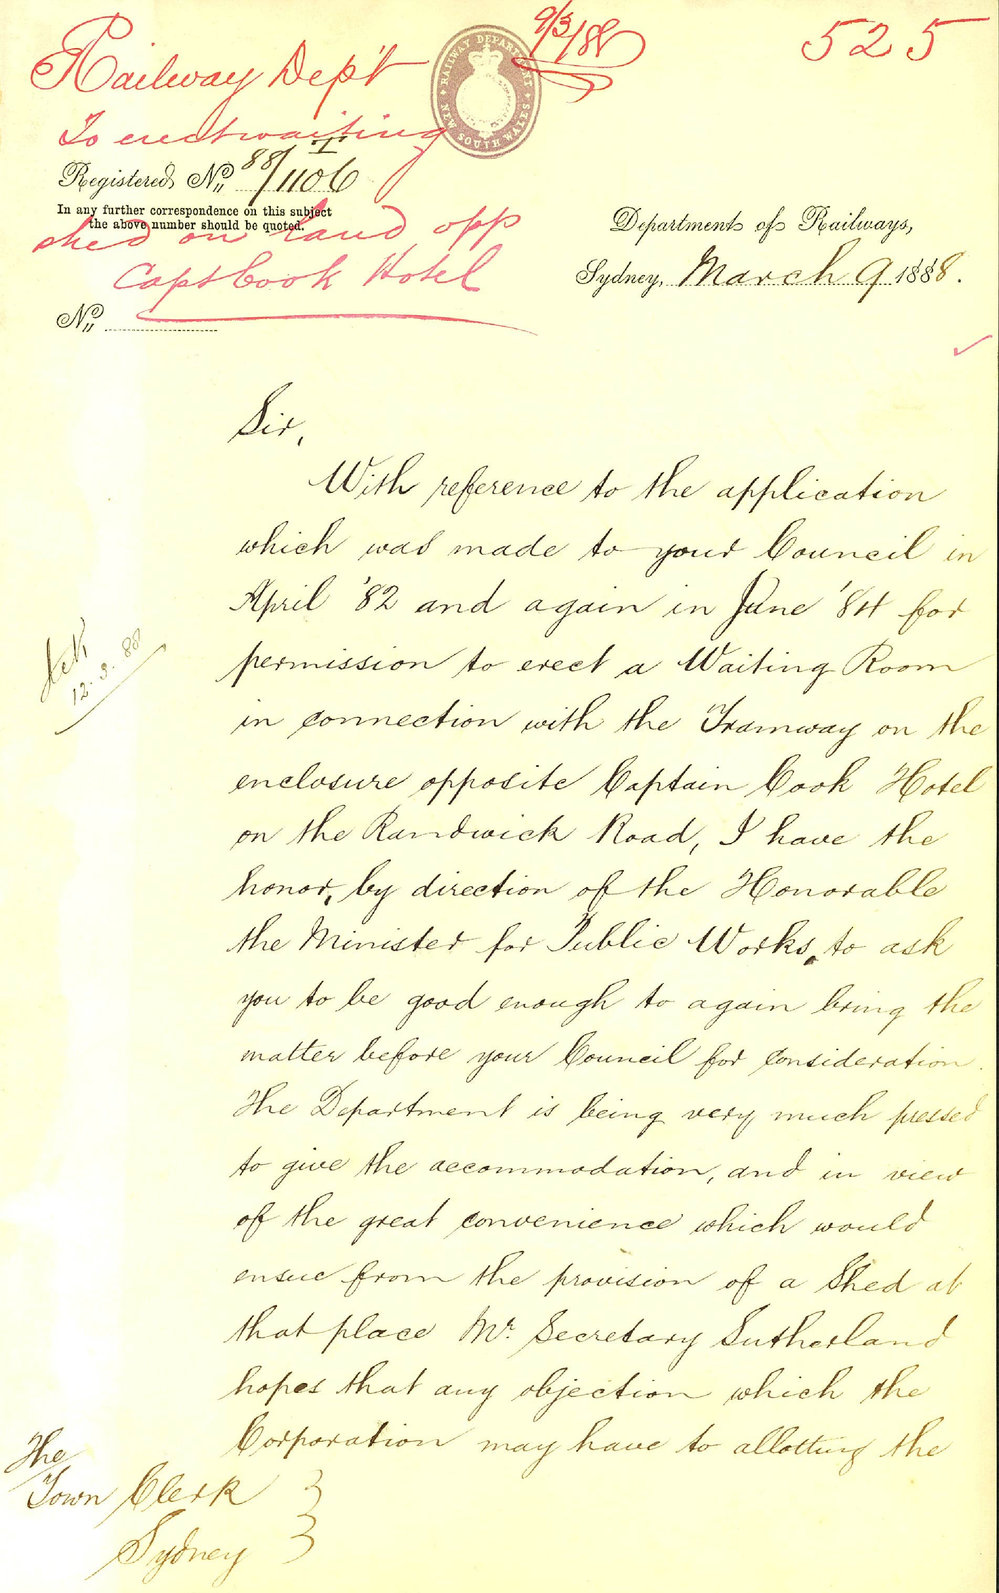 9/3/88
525
Railway Dep't
RAILWAY DEPARTMENT
NEW SOUTH WALES
To erect waiting
Registered No. 88/1106
In any further correspondence on this subject
the above number should be quoted.
shed on land opp
Capt Cook Hotel
No.
Department of Railways,
Sydney, March 9 1888.
Sir,
With reference to the application
which was made to your Council in
April '82 and again in June '84 for
permission to erect a Waiting Room
in connection with the Tramway on the
enclosure opposite Captain Cook Hotel
on the Randwick Road, I have the
honor, by direction of the Honorable
the Minister for Public Works, to ask
you to be good enough to again bring the
matter before your Council for consideration.
The Department is being very much pressed
to give the accommodation, and in view
of the great convenience which would
ensue from the provision of a Shed at
that place Mr. Secretary Sutherland
hopes that any objection which the
Corporation may have to allotting the
Ack
12.3.88
The
Town Clerk
Sydney